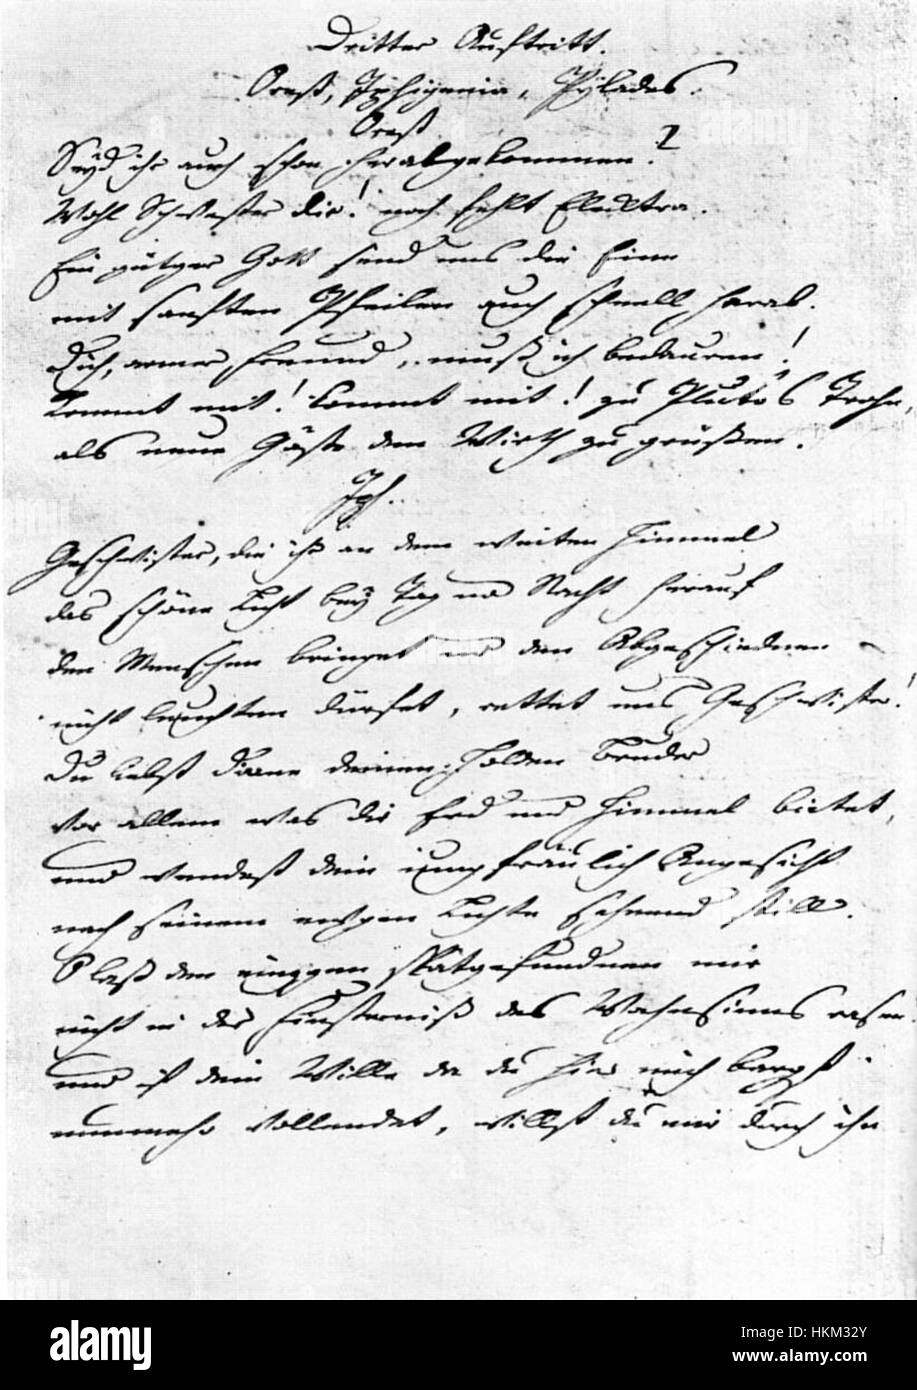 Dritter Auftritt.
Orest, Iphigenia, Pylades.
Orest
Seyd ihr auch schon herabgekommen?
Wohl Schwester dir! noch fehlt Elecktra.
Ein gütger Gott send uns die Eine
mit sanften Pfeilen auch schnell herab.
Dich, armer Freund, muß ich bedauren!
Kommt mit! kommt mit! zu Pluto's Trohn,
als neue Gäste den Wirth zu grüßen.
Iph.
Geschwister, die ihr an dem weiten Himmel
das schöne Licht bey Tag und Nacht herauf
den Menschen bringet und den Abgeschiednen
nicht leuchten dürfet, rettet uns Geschwister!
Du liebst Diane deinen holden Bruder
vor allem was dir Erd und Himmel bietet,
und wendest dein iungfräulich Angesicht
nach seinem ewgen Lichte sehnend still.
O laß den einzgen spätgefundnen mir
nicht in der Finsterniß des Wahnsinns rasen.
und ist dein Wille da du hier mich bargst
nunmehr vollendet, willst du mir durch ihn
alamy
Image ID: HKM32Y
www.alamy.com